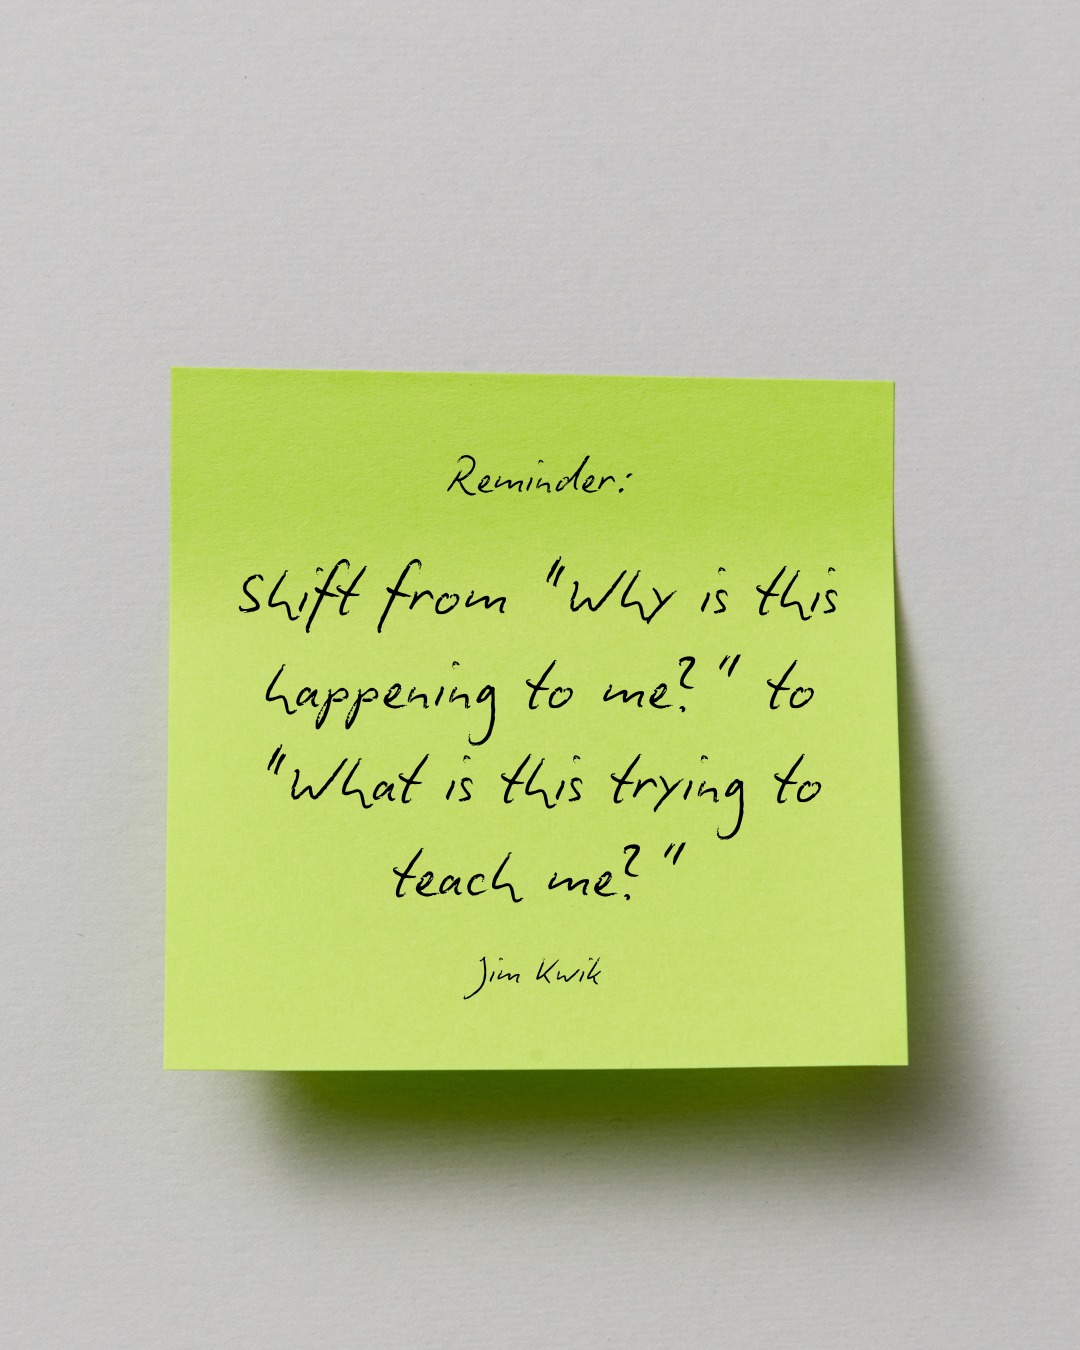 Reminder:
Shift from "Why is this
happening to me?" to
"What is this trying to
teach me?"
Jim Kwik